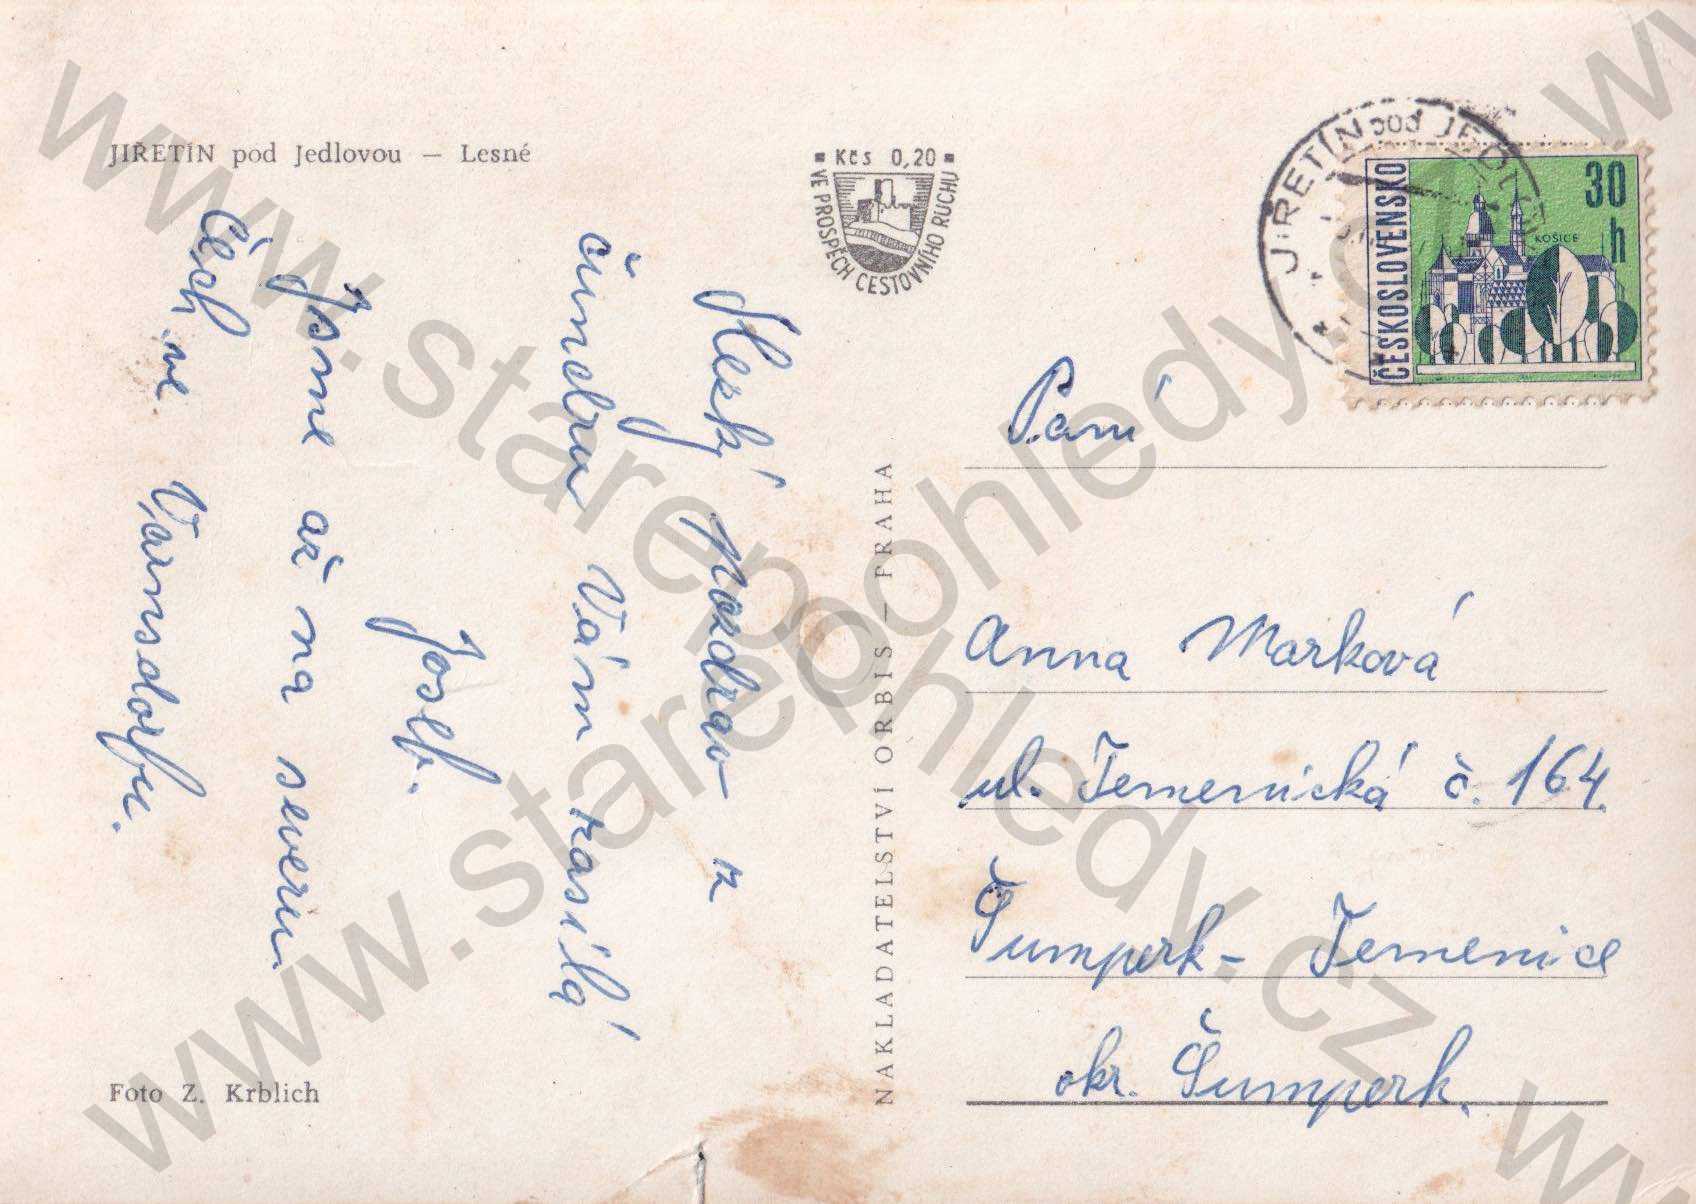 JIŘETÍN pod Jedlovou — Lesné
Kčs 0,20
VE PROSPĚCH CESTOVNÍHO RUCHU
JIŘETÍN pod JEDLOV
ČESKOSLOVENSKO
30
h
KOŠICE
Hezký pozdrav z
čundru Vám zasílá
Josef.
Jsme až na severu
Čech, ve Varnsdorfu.
NAKLADATELSTVÍ ORBIS — PRAHA
Paní
Anna Marková
ul. Temenická č. 164.
Šumperk - Temenice
okr. Šumperk.
Foto Z. Krblich
www.starepohledy.cz
www.starepohledy.cz